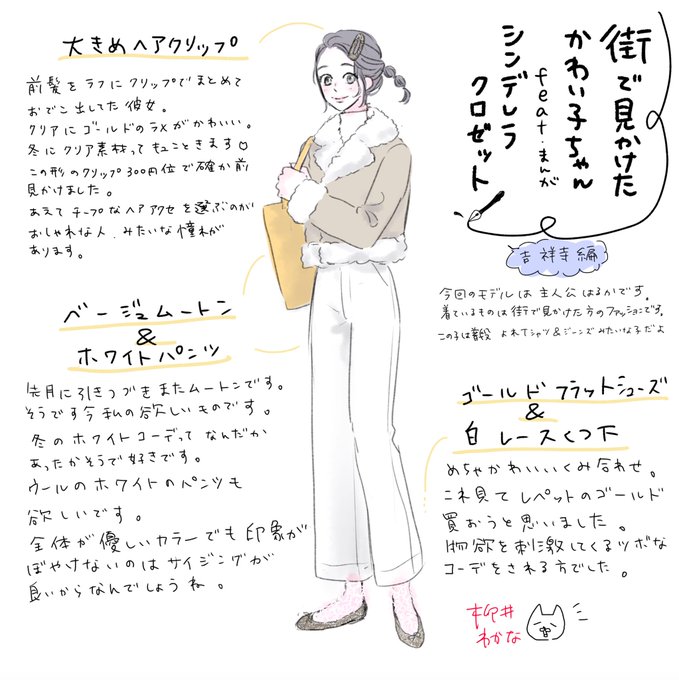 街で見かけた
かわい子ちゃん
feat.まんが
シンデレラ
クロゼット
吉祥寺編
今回のモデルは主人公はるかです。
着ているものは街で見かけた方のファッションです。
この子は普段 よれTシャツ&ジーンズみたいな子だよ
大きめヘアクリップ
前髪をラフにクリップでまとめて
おでこ出してた彼女。
クリアにゴールドのラメがかわいい。
冬にクリア素材ってキュンときます♡
この形のクリップ300円位で確か前
見かけました。
あえてチープなヘアアクセを選ぶのが
おしゃれな人、みたいな憧れが
あります。
ベージュムートン
&
ホワイトパンツ
先月に引きつづきまたムートンです。
そうです今私の欲しいものです。
冬のホワイトコーデってなんだか
あったかそうで好きです。
ウールのホワイトのパンツも
欲しいです。
全体が優しいカラーでも印象が
ぼやけないのはサイジングが
良いからなんでしょうね。
ゴールドフラットシューズ
&
白レースくつ下
めちゃかわいいくみ合わせ。
これ見てレペットのゴールド
買おうと思いました。
物欲を刺激してくるツボな
コーデをされる方でした。
柳井
わかな